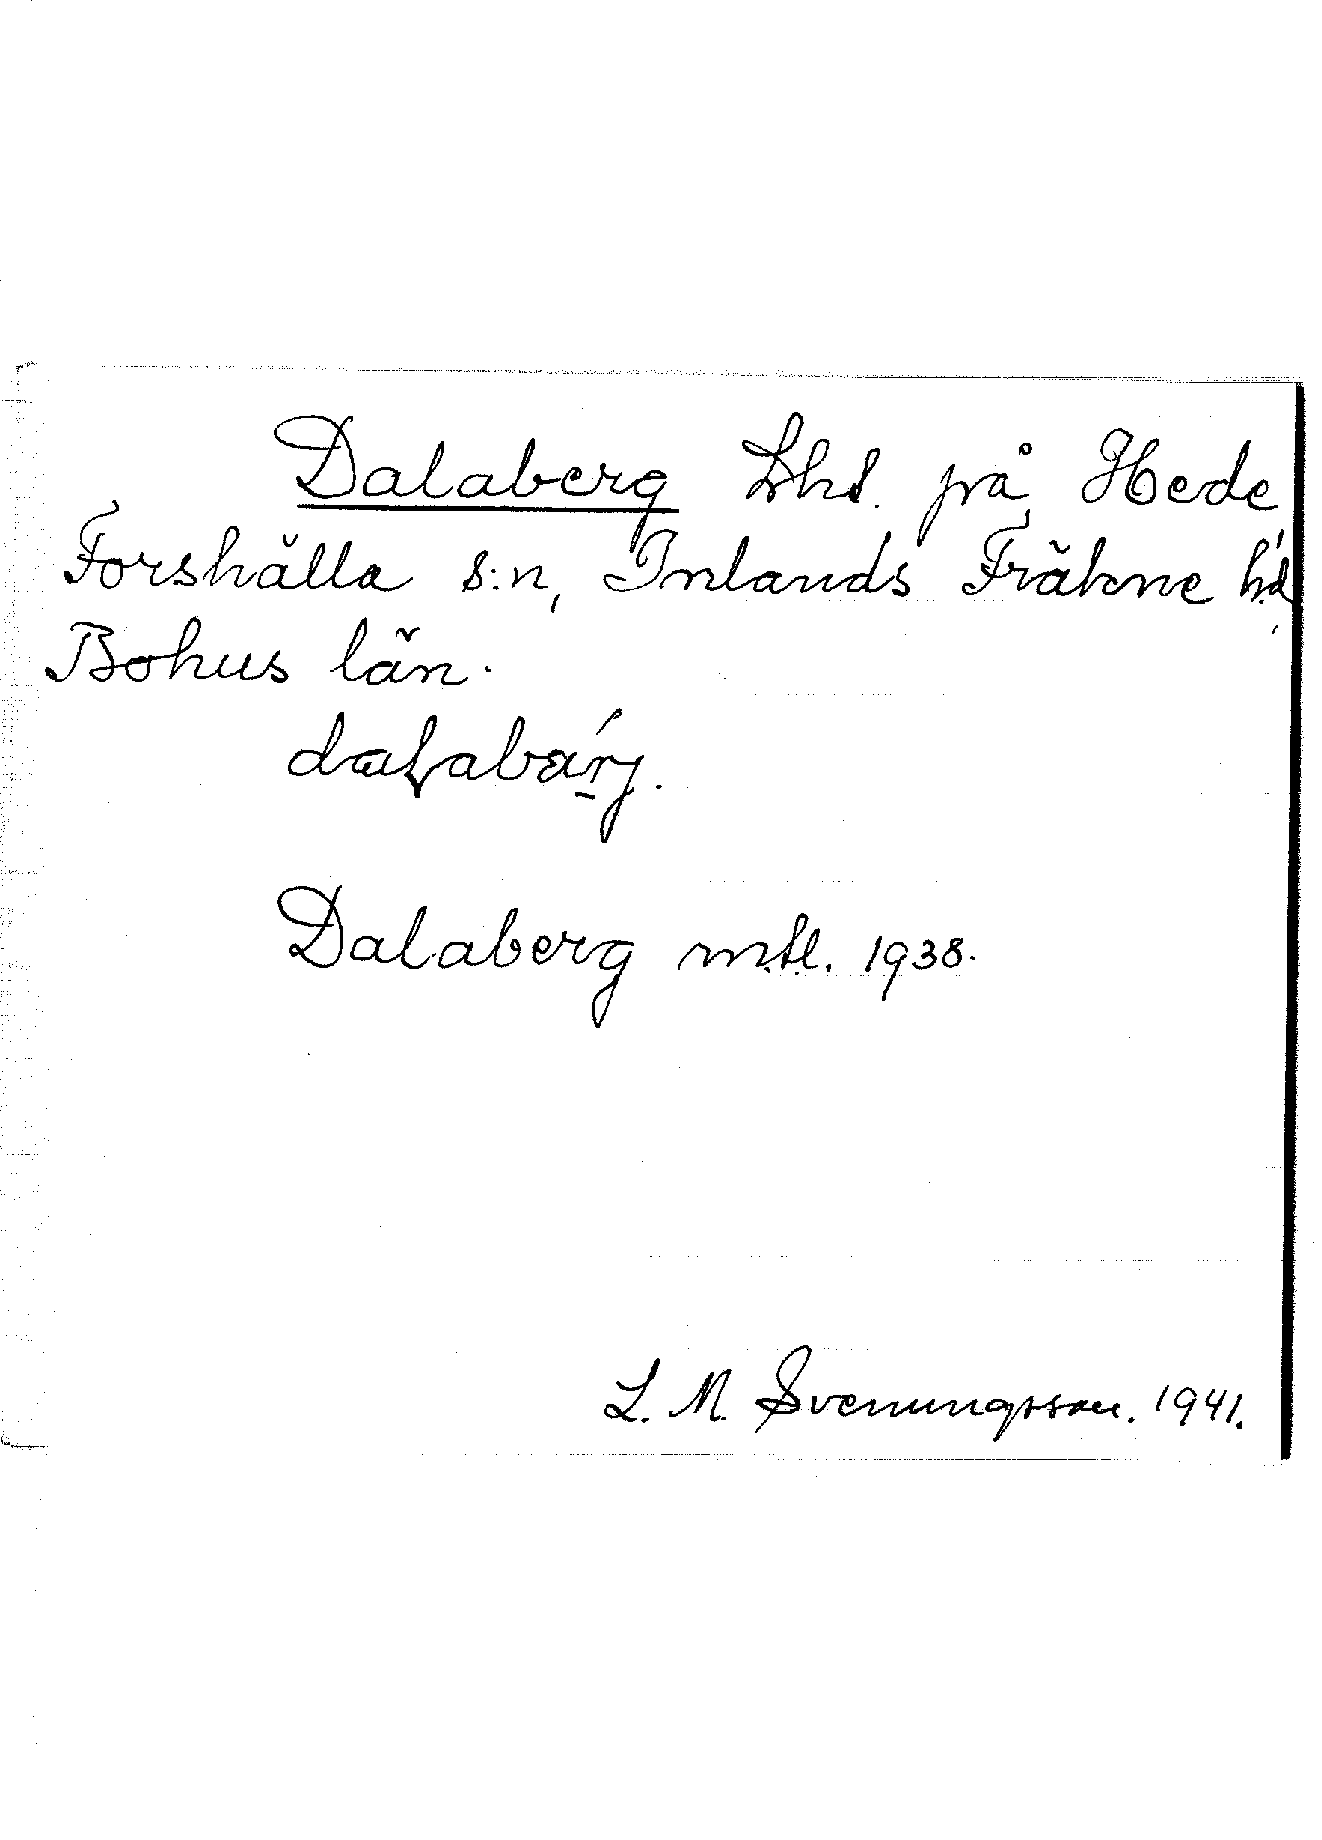 Dalaberg Lht. på Hede,
Forshälla s:n, Inlands Fräkne hd,
Bohus län.
Dalaberg mtl. 1938.
L. M. Svenungsson. 1941.